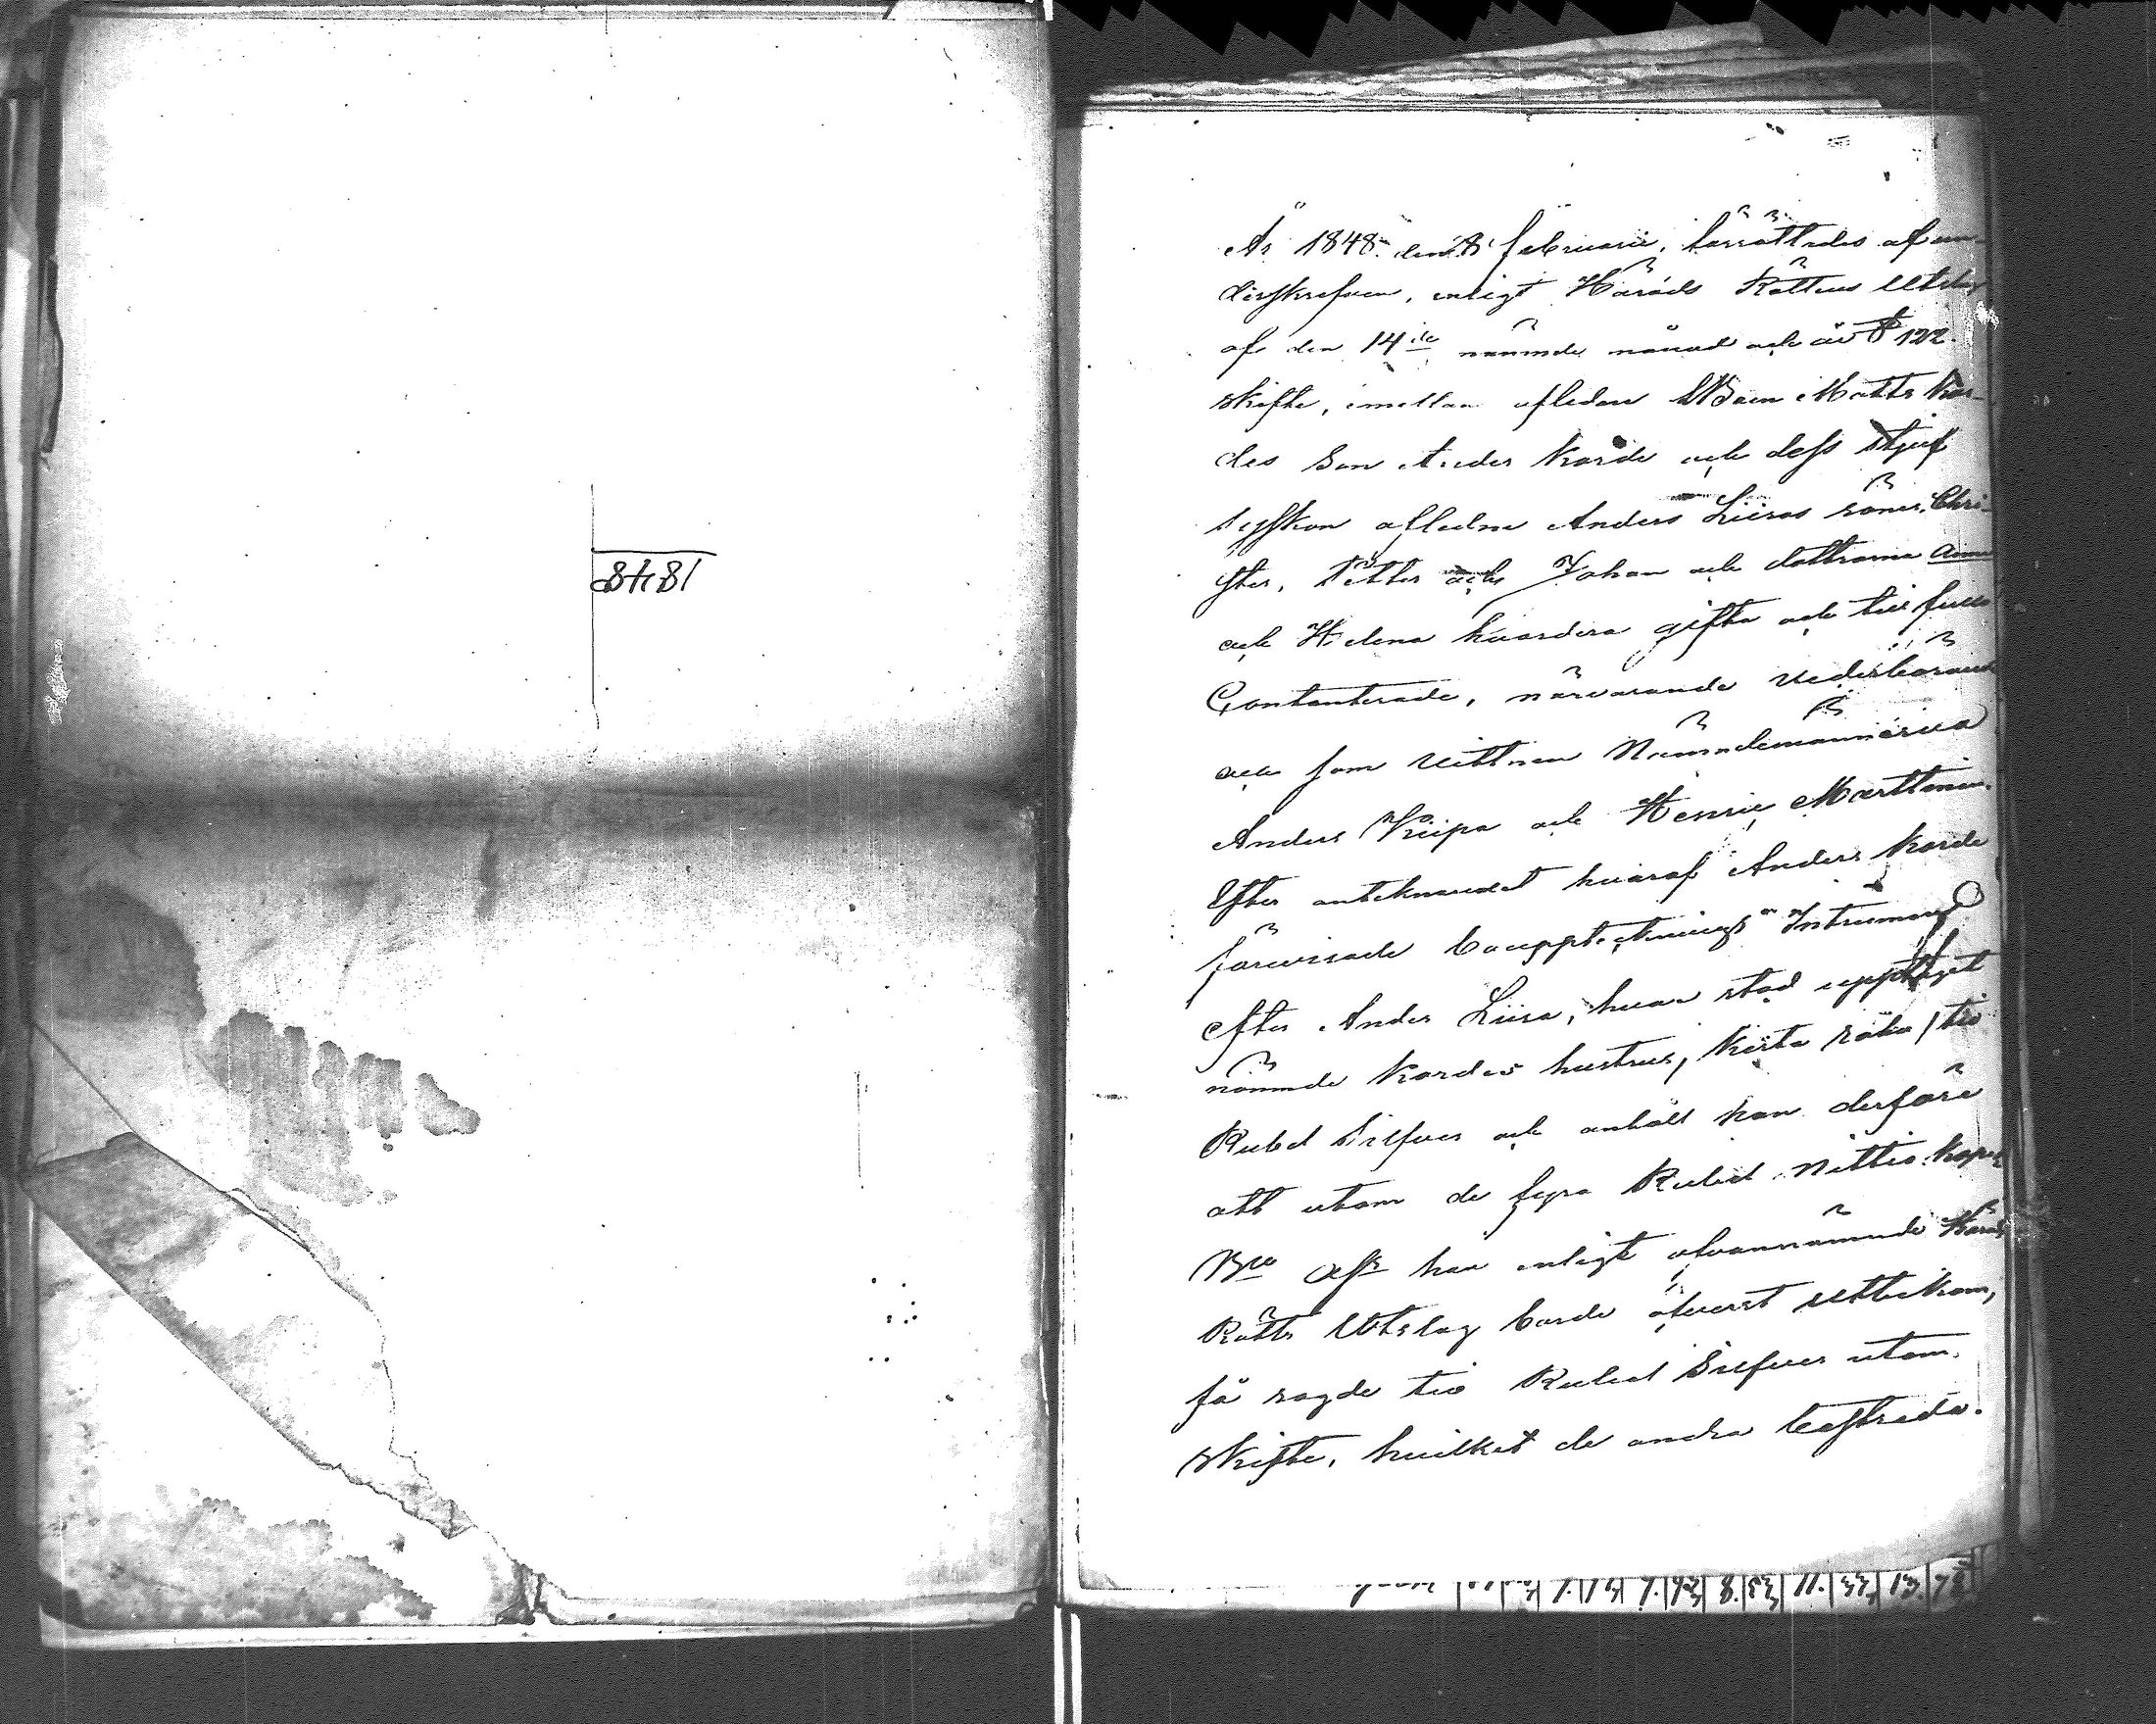 1848
År 1848 den 8 februarii, förrättades af un-
derskrefven, enligt Härads Rättens Utslag
af den 14de nämnde månad och år § 122.
skifte, emellan afledne Matts Kor-
des Son Anders Korde och dess styf
syskon afledne Anders Liisas söner, Chri-
ster, Petter och Johan och döttrarna Anna
och Helena hvardera gifta och till fullo
Contenterade, närvarande vederbörande
och som vittnen Nämndemännerna
Anders Kiipa och Henric Marttinen.
Efter antecknandet hvaraf Anders Korde
förevisade boupptecknings Intrument
efter Anders Liisa, hvar stod upptaget
nämnde Kordes hustrus, Kista söka / tio
Rubel Silfver och anhöll han derföre
att utom de fyra Rubel Nittio kopek
han enligt ofvannämnde Härads
Rätts Utslag borde öfverst utbekom,
få sagde tio Rubel Silfver utom
skifte, hvilket de andra bestredo.